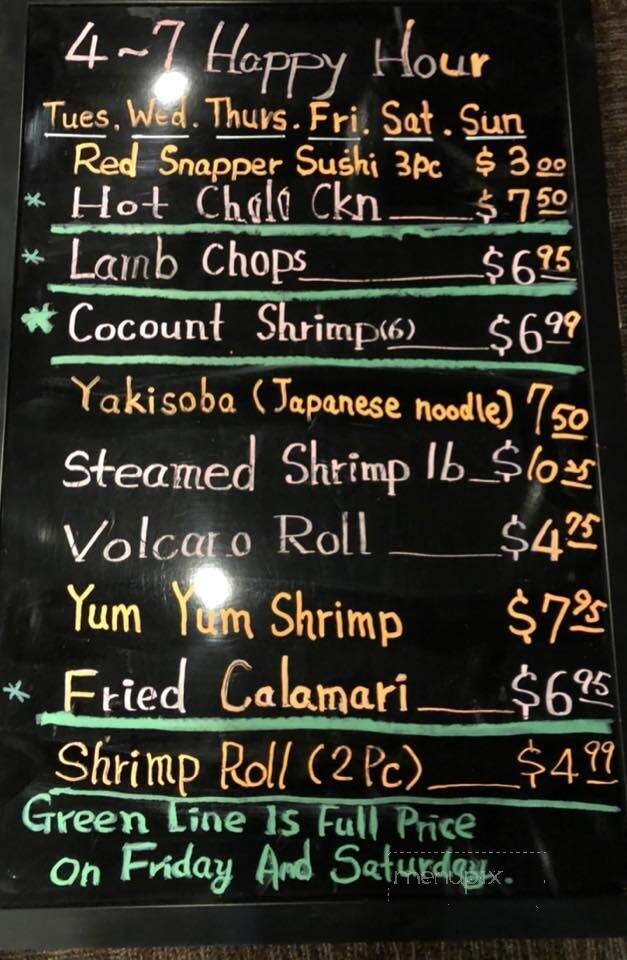 4~7 Happy Hour
Tues. Wed. Thurs. Fri. Sat. Sun
Red Snapper Sushi 3pc $3.00
* Hot Ckn $7.50
* Lamb Chops $6.95
* Cocount Shrimp(6) $6.99
Yakisoba (Japanese noodle) 7.50
Steamed Shrimp 1b $10.25
Volcano Roll $4.75
Yum Yum Shrimp $7.95
* Fried Calamari $6.95
Shrimp Roll (2Pc) $4.99
Green Line Is Full Price
on Friday And Saturday.
menupix